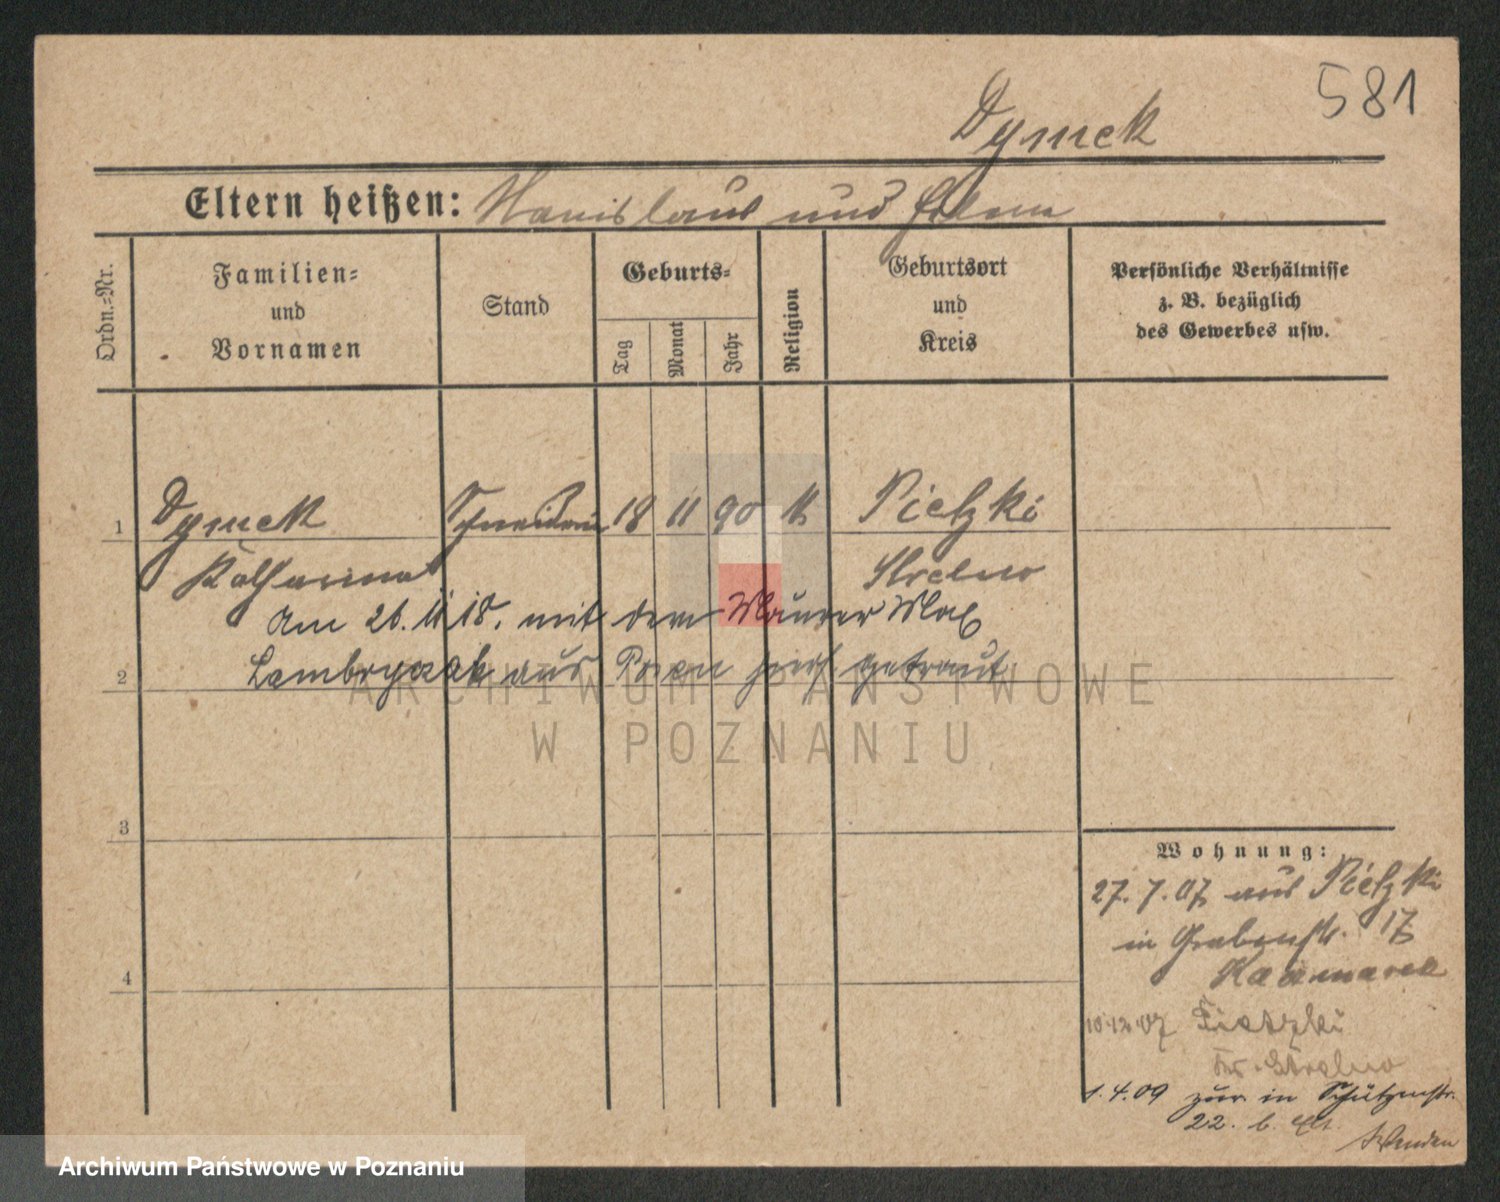 581
Dymek
Eltern heißen: Stanislaus und Helena
Ordn.-Nr.
Familien-
und
Vornamen
Stand
Geburts-
Tag
Monat
Jahr
Religion
Geburtsort
und
Kreis
Persönliche Verhältnisse
z. B. bezüglich
des Gewerbes usw.
1
Dymek Schneiderin 18 11 90 k. Pietzki
Katharina Strelno
Am 26. 11 18. mit dem Maurer Max
2
Lambryczak aus Posen getraut
3
4
Wohnung:
27. 7. 07 aus Pietzki
in Grabenstr. 17
Kaczmarek
10.12.07 Pietzki
Kr. Strelno
1.4.09 zur. in Schützenstr.
22. b.
ARCHIWUM PAŃSTWOWE
W POZNANIU
Archiwum Państwowe w Poznaniu